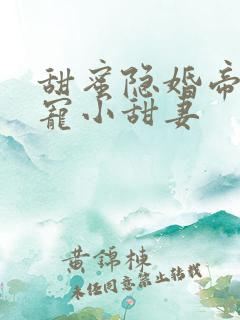 甜蜜隐婚帝
宠小甜妻
黄锦栋
未经同意禁止转载